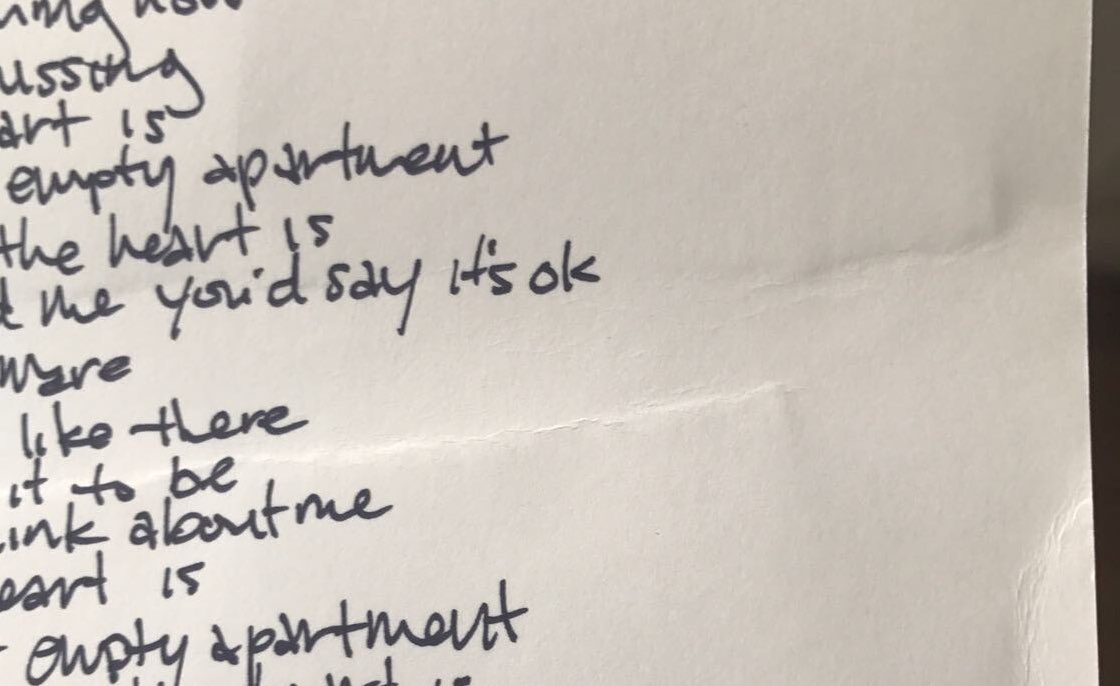 ussing
art is
empty apartment
the heart is
me you'd say it's ok
ware
like there
it to be
ink about me
eart is
empty apartment